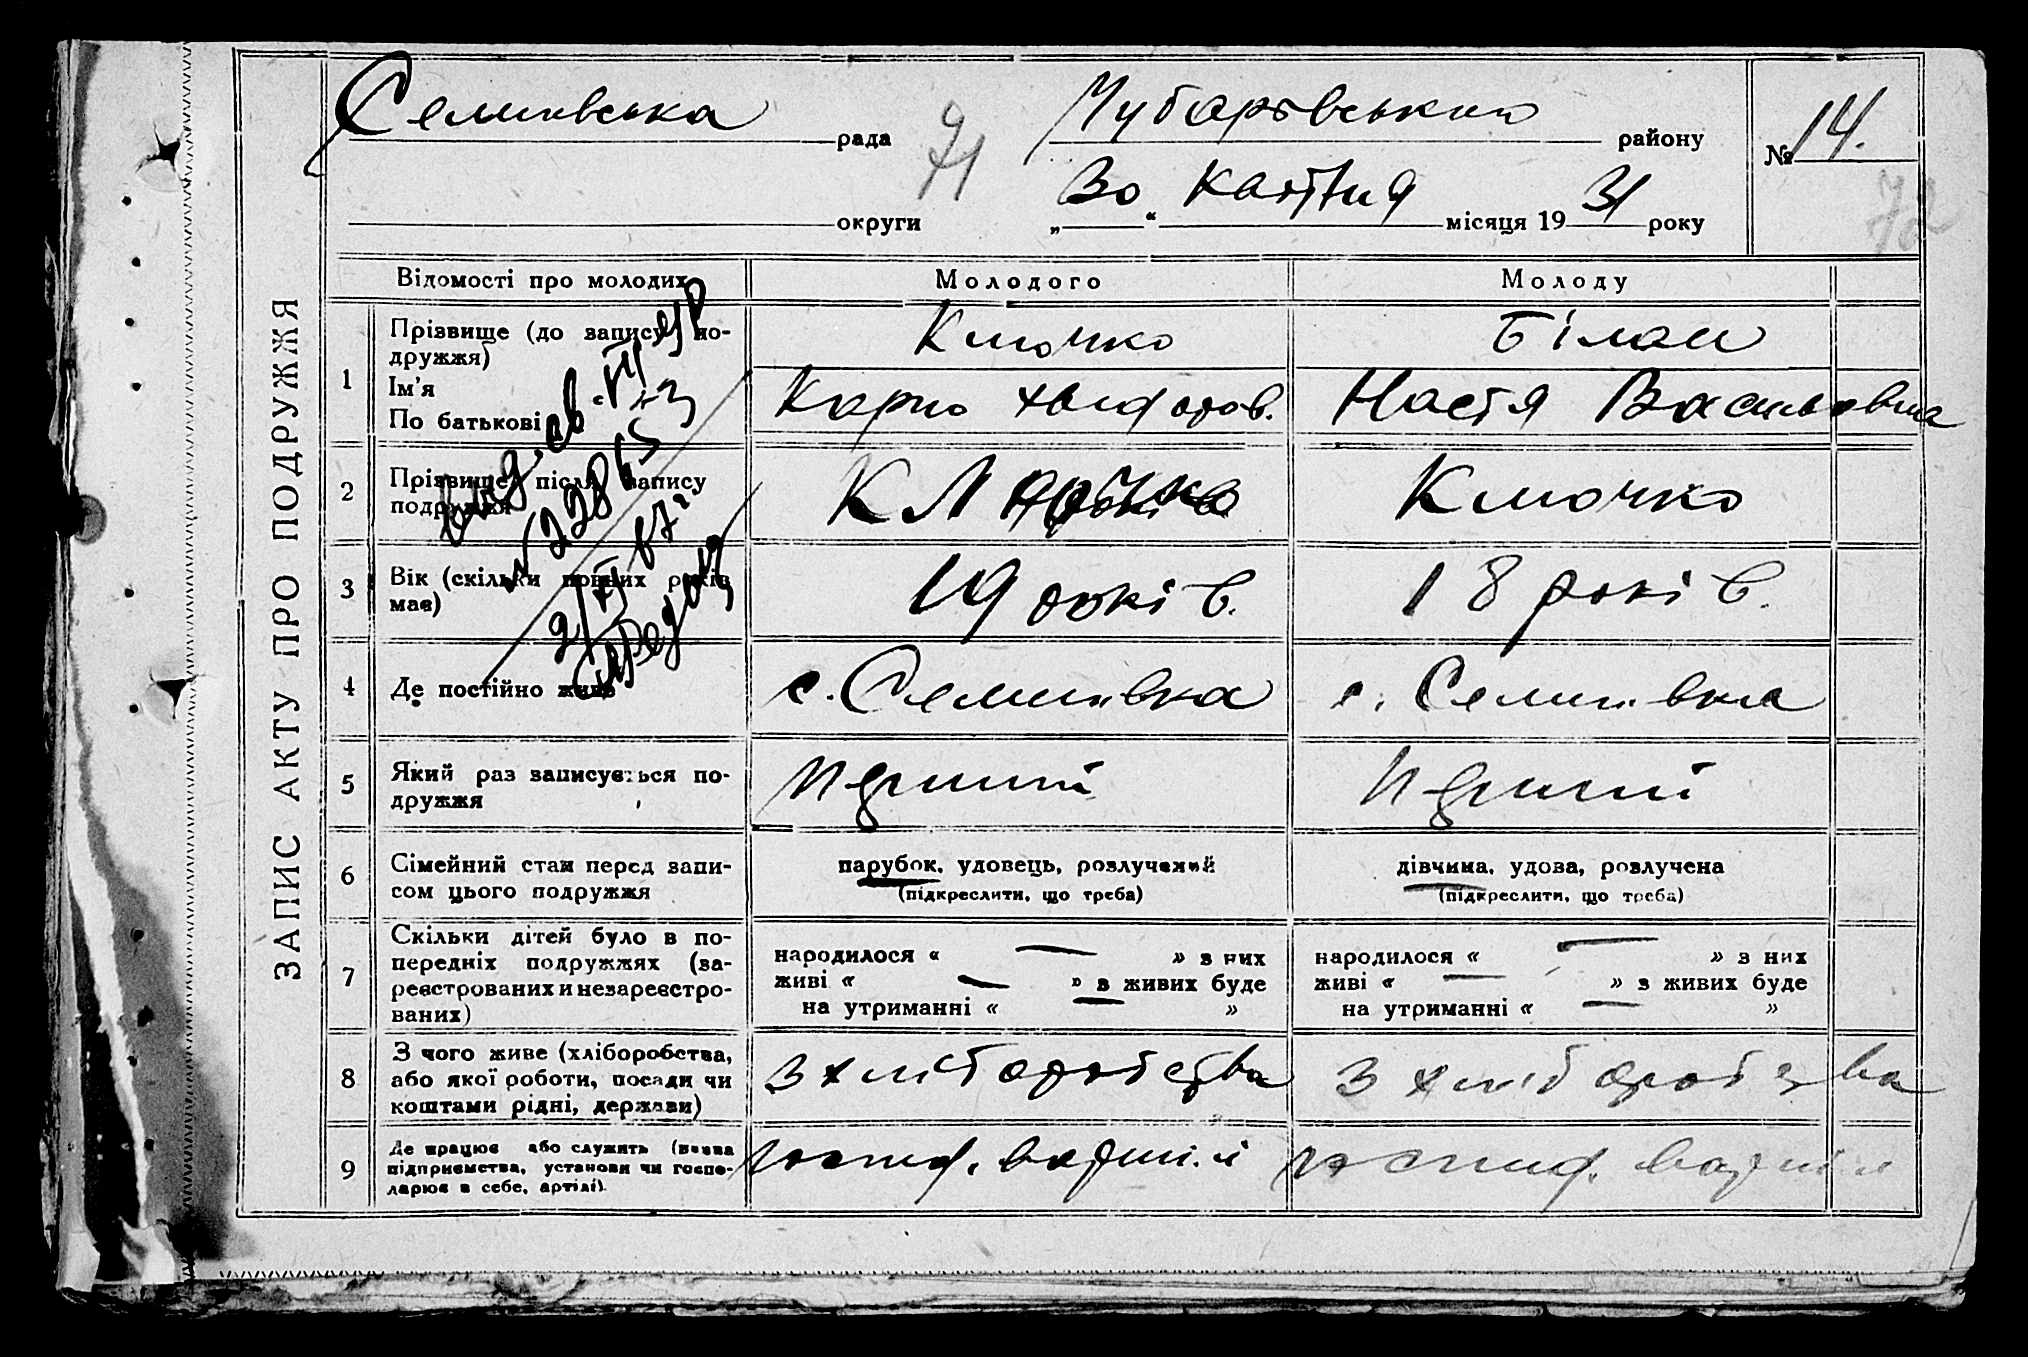 ЗАПИС АКТУ ПРО ПОДРУЖЖЯ
Семиівська рада
71
Чубарівського району
№ 14.
72
округи
„30“ Квітня місяця 1931 року
Відомості про молодих
Молодого
Молоду
1
Прізвище (до запису по-
дружжя)
Ім'я
По батькові
Клочко
Карпо
Білан
Настя Васильовна
2
Прізвище після запису
подружжя
Клочко
3
Вік (скільки повних років
має)
19 років.
18 років.
4
Де постійно живе
с. Семиівка
с. Семиівка
5
Який раз записується по-
дружжя
Перший
Перший
6
Сімейний стан перед запи-
сом цього подружжя
парубок, удовець, розлучений
(підкреслити, що треба)
дівчина, удова, розлучена
(підкреслити, що треба)
7
Скільки дітей було в по-
передніх подружжях (за-
реєстрованих и незареєстро-
ваних)
народилося « — » з них
живі « — » з живих буде
на утриманні « — »
народилося « — » з них
живі « — » з живих буде
на утриманні « — »
8
З чого живе (хліборобства,
або якої роботи, посади чи
коштами рідні, держави)
З хліборобства
З хліборобства
9
Де працює або служить (назва
підприємства, установи чи госпо-
дарює в себе, артілі)